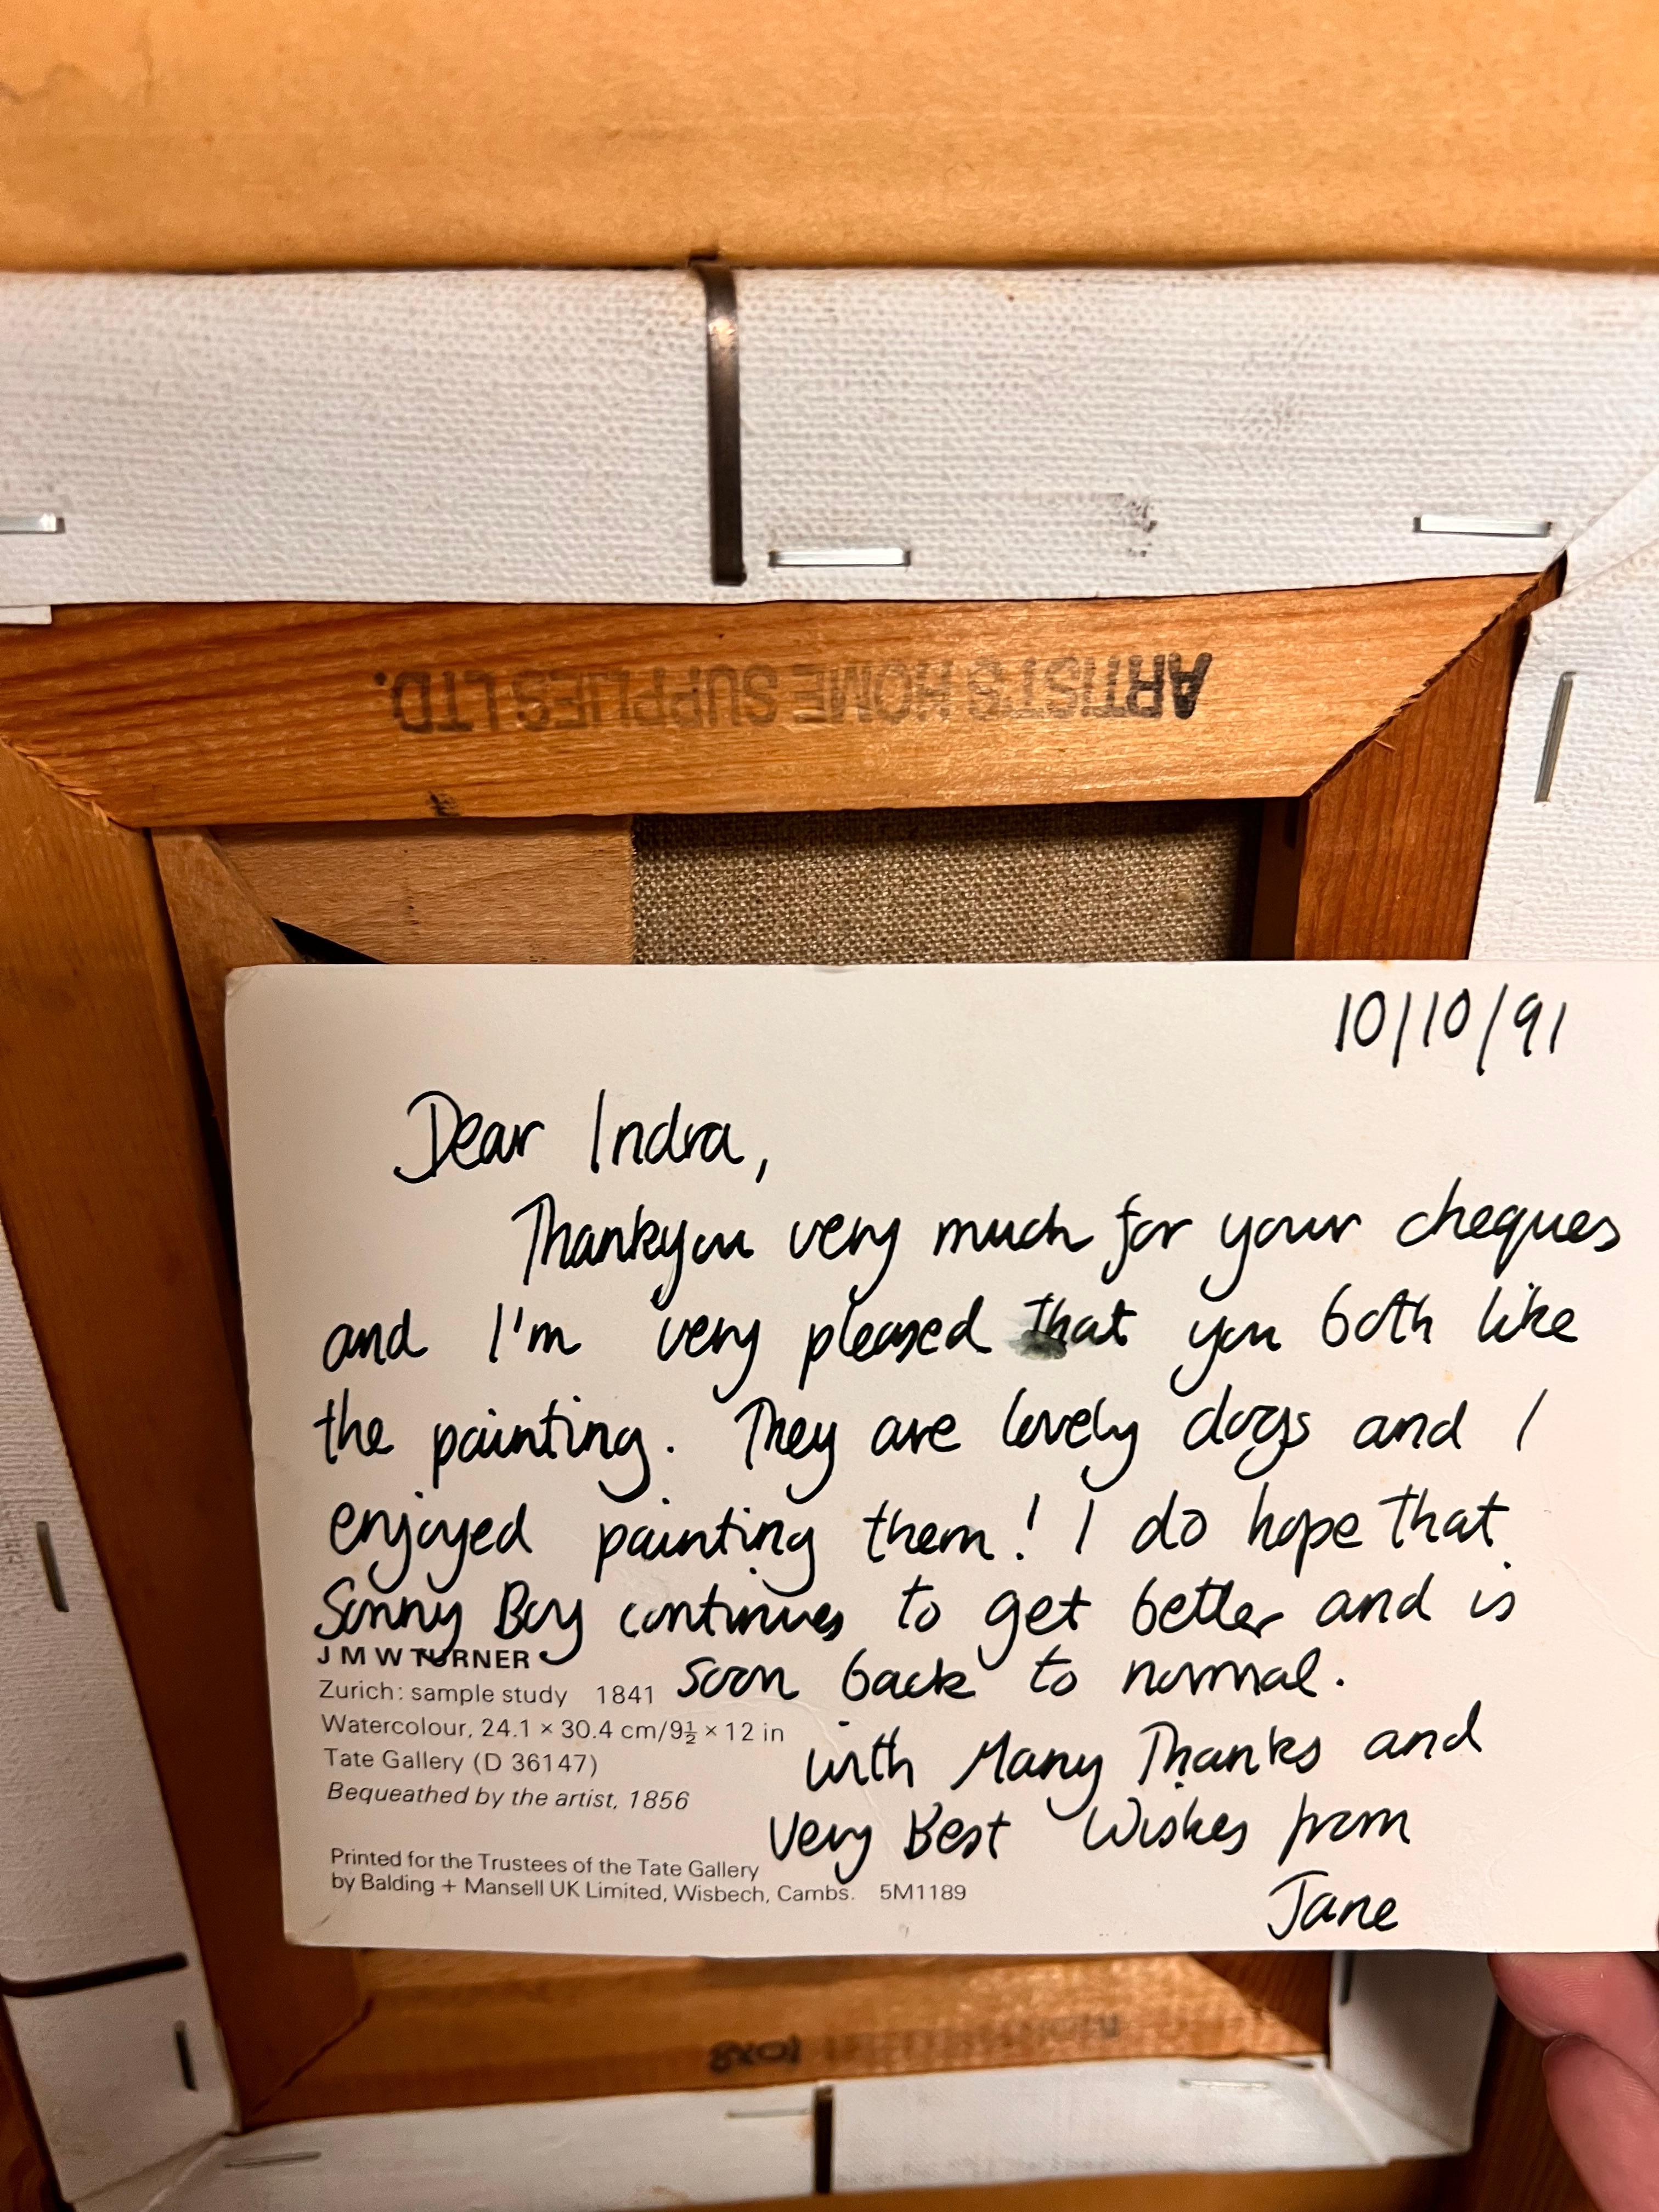 ARTISTS HOME SUPPLIES LTD.
10/10/91
Dear Indra,
Thankyou very much for your cheques
and I'm very pleased that you both like
the painting. They are lovely dogs and I
enjoyed painting them! I do hope that
Sonny Boy continues to get better and is
soon back to normal.
J M W TURNER
Zurich: sample study 1841
Watercolour, 24.1 × 30.4 cm/9½ × 12 in
Tate Gallery (D 36147)
Bequeathed by the artist, 1856
with Many Thanks and
Very Best Wishes from
Jane
Printed for the Trustees of the Tate Gallery
by Balding + Mansell UK Limited, Wisbech, Cambs. 5M1189
10x8